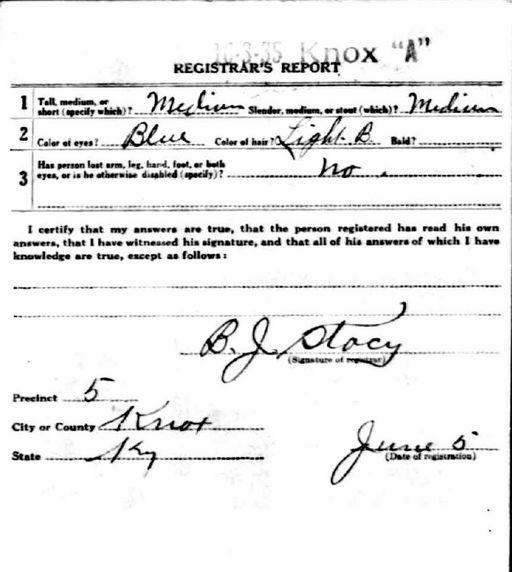 16-3-35 Knox "A"
REGISTRAR'S REPORT
1 Tall, medium, or short (specify which)? Medium Slender, medium, or stout (which)? Medium
2 Color of eyes? Blue Color of hair? Light B. Bald?
3 Has person lost arm, leg, hand, foot, or both eyes, or is he otherwise disabled (specify)? No.
I certify that my answers are true, that the person registered has read his own
answers, that I have witnessed his signature, and that all of his answers of which I have
knowledge are true, except as follows:
B. J. Stacy
(Signature of registrar)
Precinct 5
City or County Knox
State Ky
June 5
(Date of registration)